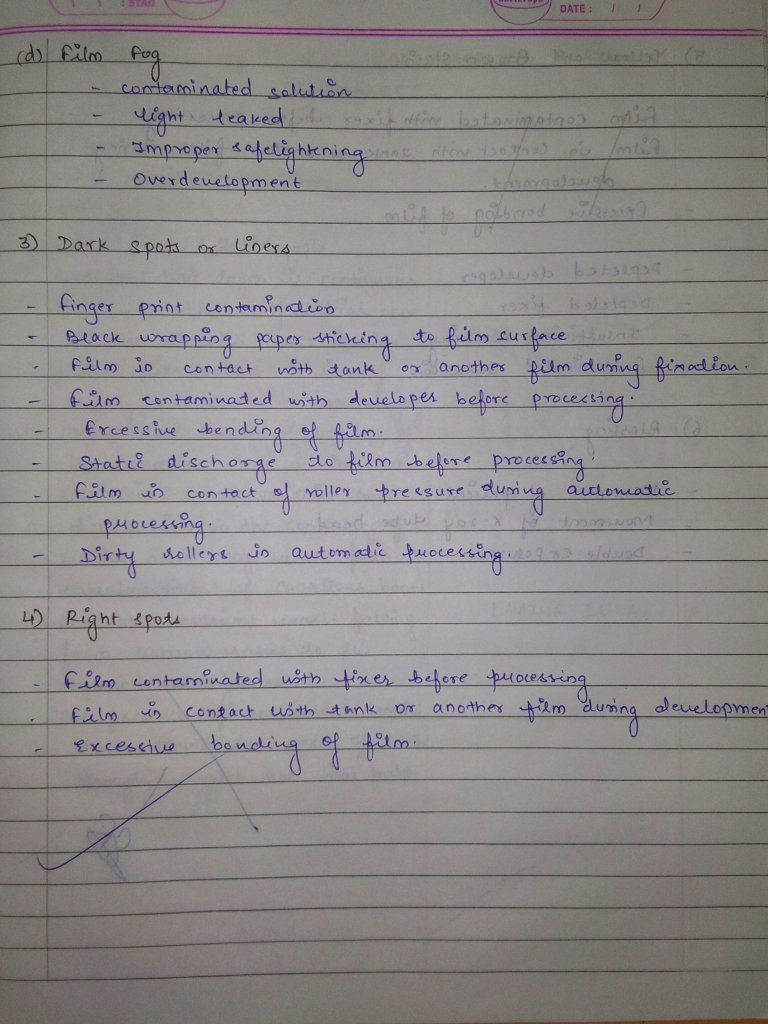 DATE : / /
(d) Film Fog
- contaminated solution
- light leaked
- Improper safelightening
- Overdevelopment
3) Dark spots or liners
- finger print contamination
- Black wrapping paper sticking to film surface
- Film in contact with tank or another film during fixation.
- Film contaminated with developer before processing.
- Excessive bending of film.
- Static discharge to film before processing.
- Film in contact of roller pressure during automatic
processing.
- Dirty rollers in automatic processing.
4) Right spots
- Film contaminated with fixer before processing
- Film in contact with tank or another film during developmen
- Excessive bonding of film.